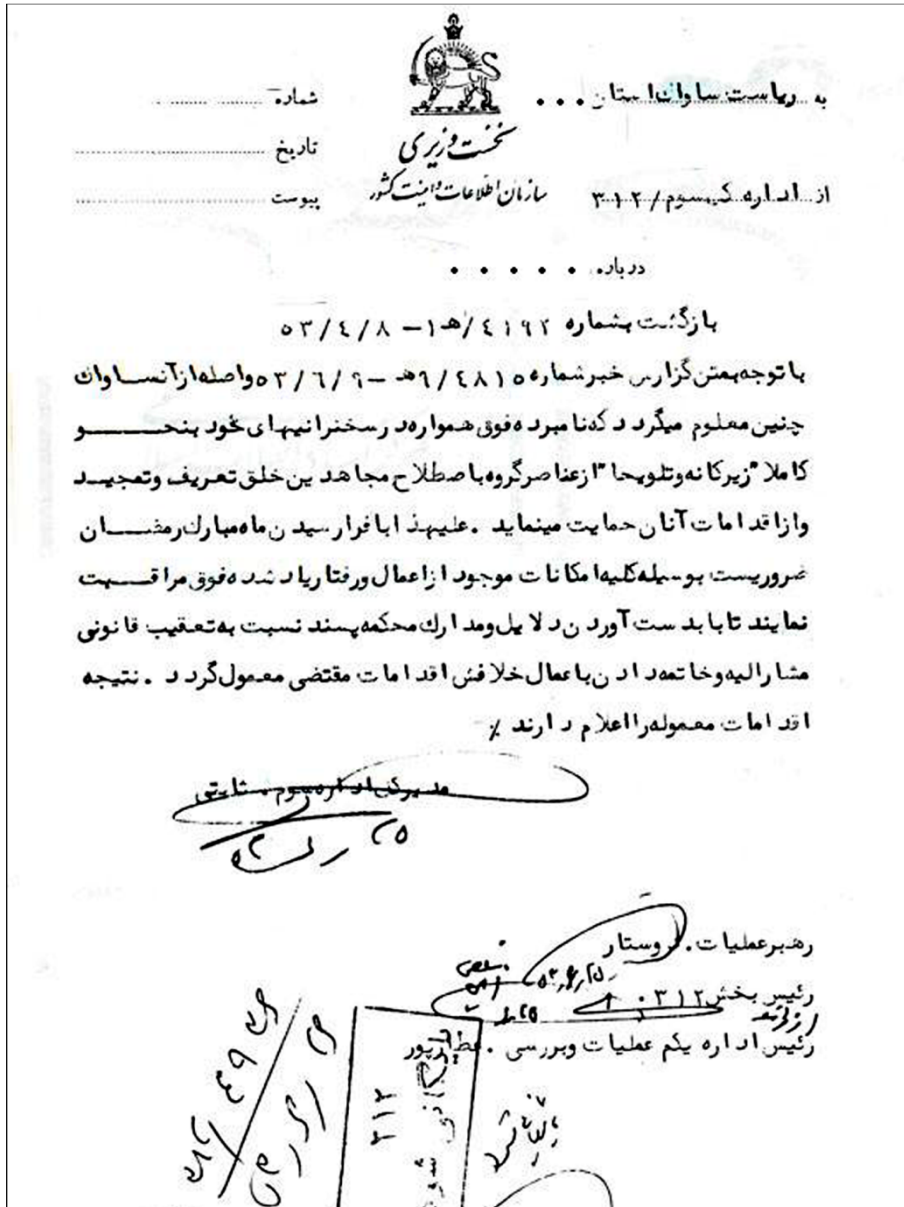 شماره
به ریاست ساواک استان . . .
نخست وزیری
تاریخ
سازمان اطلاعات و امنیت کشور
از اداره کل سوم / ۳۱۲
پیوست
درباره . . . . .
بازگشت بشماره ۴۱۹۲/هـ۱ – ۵۳/۴/۸
باتوجه بمتن گزارش خبر شماره ۹/۴۸۱۵هـ – ۵۳/۶/۹ واصله از آن ساواک
چنین معلوم میگردد که نامبرده فوق همواره در سخنرانیهای خود بنحو
کاملا" زیرکانه و تلویحا" از عناصر گروه باصطلاح مجاهدین خلق تعریف و تمجید
و از اقدامات آنان حمایت مینماید . علیهذا با فرا رسیدن ماه مبارک رمضان
ضروریست بوسیله کلیه امکانات موجود از اعمال و رفتار یاد شده فوق مراقبت
نمایند تا با بدست آوردن دلایل و مدارک محکمه پسند نسبت به تعقیب قانونی
مشارالیه و خاتمه دادن باعمال خلافش اقدامات مقتضی معمول گردد . نتیجه
اقدامات معموله را اعلام دارند ٪
مدیرکل اداره سوم . ثابتی
رهبر عملیات . روستار
رئیس بخش ۳۱۲
رئیس اداره یکم عملیات و بررسی . عطارپور
بایگانی شود
۳۱۲